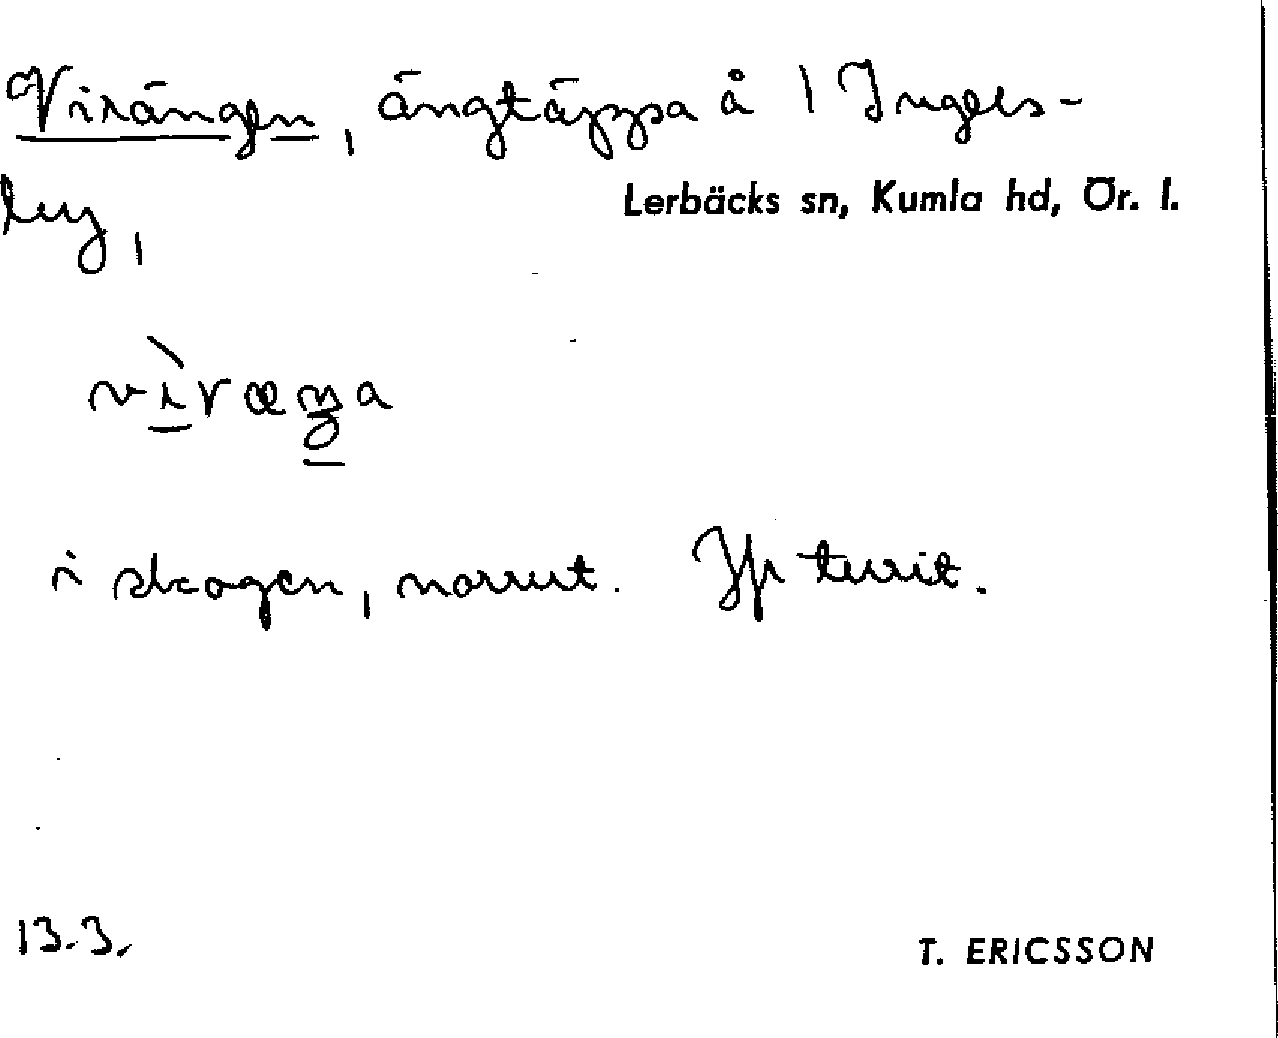 Virängen, ängtäppa å 1 Ingels-
by,
Lerbäcks sn, Kumla hd, Ör. l.
i skogen, norrut. Jfr
13.3.
T. ERICSSON